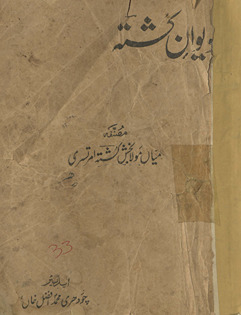 دیوانِ کُشتہ
مصنفہ
میاں مولا بخش کُشتہ امرتسری
33
چودھری محمد افضل خاں